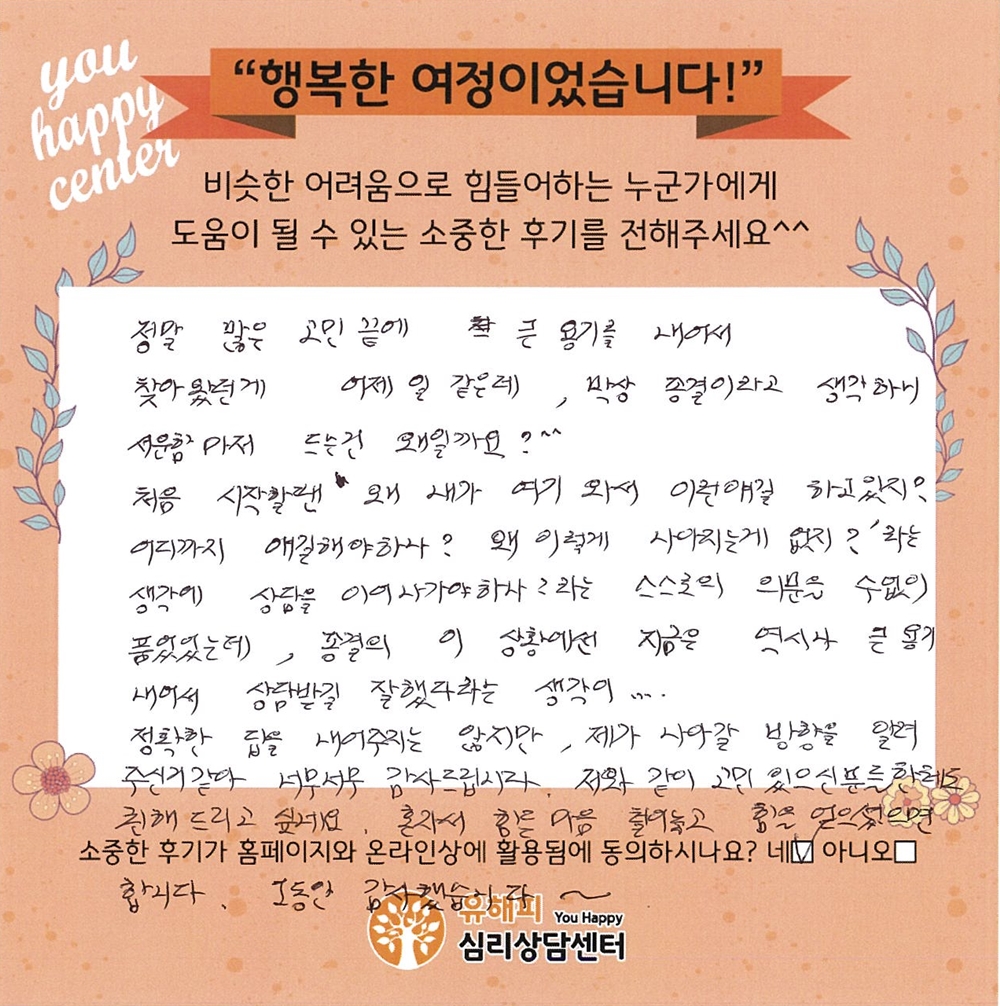 you
happy
center
“행복한 여정이었습니다!”
비슷한 어려움으로 힘들어하는 누군가에게
도움이 될 수 있는 소중한 후기를 전해주세요^^
정말 많은 고민 끝에 큰 용기를 내어서
찾아왔던게 어제 일 같은데, 막상 종결이라고 생각하니
서운함마저 드는건 왜일까요?^^
처음 시작할땐 왜 내가 여기 와서 이런얘길 하고있지?
어디까지 얘길해야하나? 왜 이렇게 나아지는게 없지? 라는
생각에 상담을 이어나가야하나? 라는 스스로의 의문을 수없이
품었었는데, 종결의 이 상황에선 지금은 역시나 큰 용기
내어서 상담받길 잘했다라는 생각이....
정확한 답을 내어주지는 않지만, 제가 나아갈 방향을 알려
주신거같아 너무너무 감사드립니다. 저와 같이 고민 있으신분들한테도
권해 드리고 싶네요. 혼자서 힘든 마음 털어놓고 힘을 얻으셨으면
소중한 후기가 홈페이지와 온라인상에 활용됨에 동의하시나요? 네☑ 아니오☐
합니다. 그동안 감사했습니다~
유해피 You Happy
심리상담센터